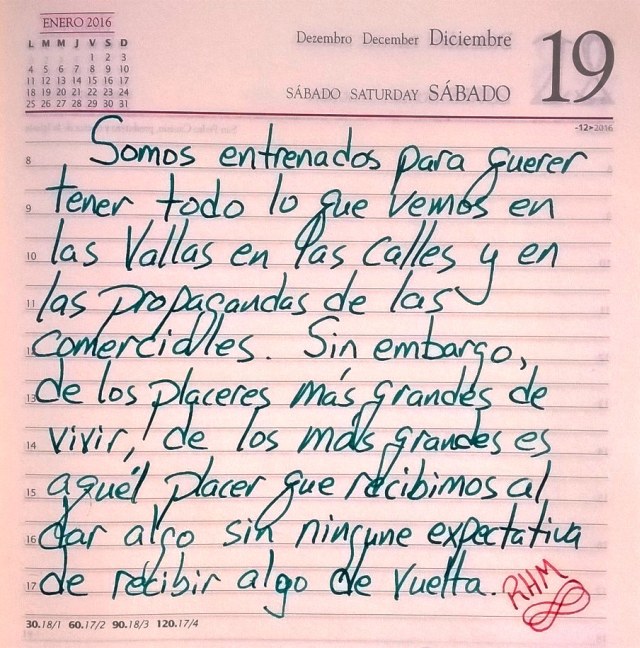 ENERO 2016
L M M J V S D
1 2 3
4 5 6 7 8 9 10
11 12 13 14 15 16 17
18 19 20 21 22 23 24
25 26 27 28 29 30 31
Dezembro December Diciembre
SÁBADO SATURDAY SÁBADO
19
-12-2016
8 Somos entrenados para querer
9 tener todo lo que vemos en
10 las Vallas en las calles y en
11 las propagandas de las
comerciales. Sin embargo,
13 de los placeres más grandes de
14 vivir, de los más grandes es
15 aquel placer que recibimos al
16 dar algo sin ningune expectativa
17 de recibir algo de vuelta. RHM
30.18/1 60.17/2 90.18/3 120.17/4